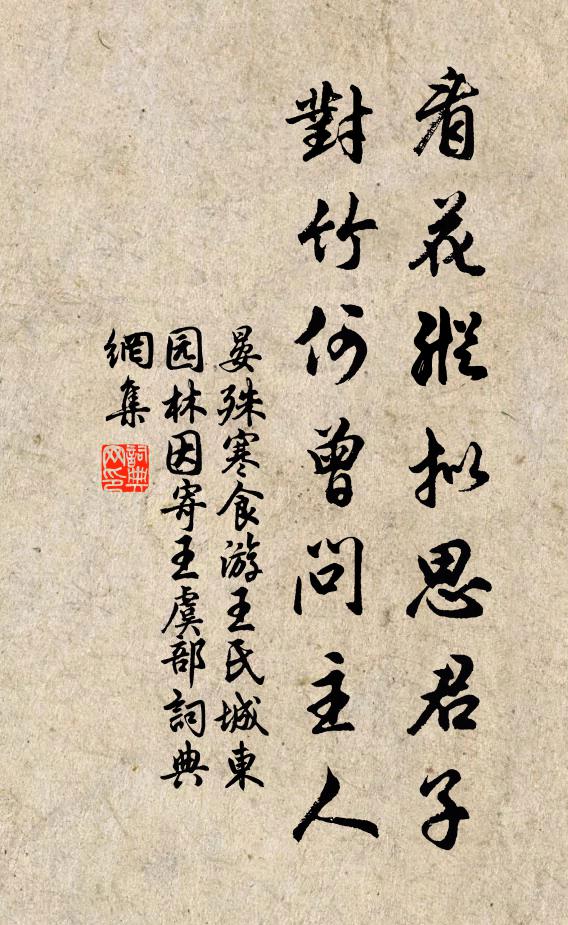 看花縱擬思君子
對竹何曾問主人
晏殊寒食游王氏城東
园林因寄王虞部詞典
網集
詞典
网印